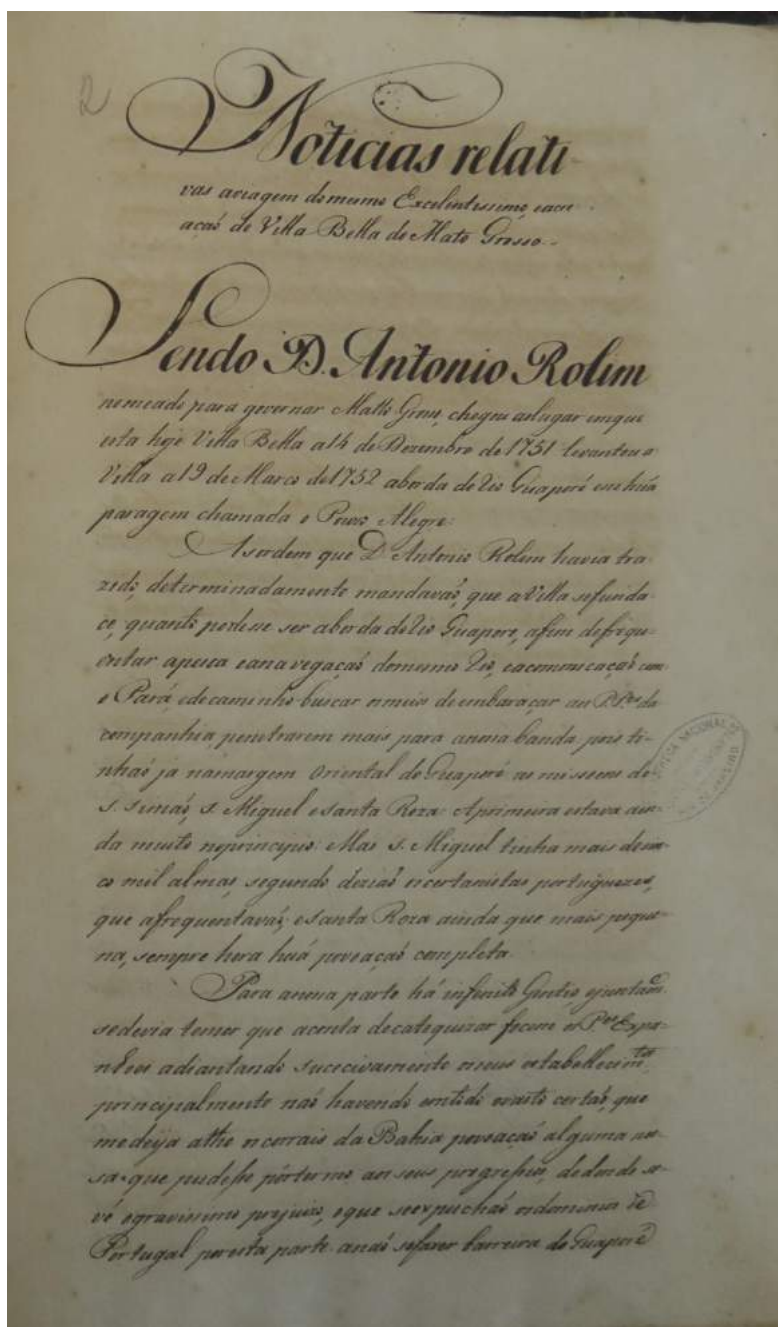 2
Noticias relati
vas aviagem domesmo Excelentissimo, eacre
açaõ de Villa Bella do Mato Grosso..
Sendo D. Antonio Rolim
nomeado para governar Matto Groso, chegou aolugar emque
esta hoje Villa Bella a 14 de Dezembro de 1751 levantou a
Villa a 19 de Marco de 1752 aborda do Rio Guaporé em huã
paragem chamada o Pouso Alegre.
Asordem que D. Antonio Rolim havia tra
zido, determinadamente mandavaõ, que aVilla sefunda
ce, quanto podesse ser aborda do Rio Guapore, afim defrequ
entar apesca eanavegaçaõ domesmo Rio, eacomonicaçaõ com
o Pará, edecaminho buscar omeio deembaraçar aos P.Pes da
companhia, penetrarem mais para anosa banda, pois ti
nhaõ ja namargem Oriental do Guaporé as missoens de
S. Simaõ, S. Miguel esanta Roza. Aprimeira estava ain
da muito noprincipio. Mas S. Miguel tinha mais de
co mil almas, segundo diziaõ ocertanistas portuguezes,
que afrequentavaõ; esanta Roza ainda que mais peque
na, sempre hera huã povoaçaõ completa.
Para anosa parte há infinito Gentio, ejuntam.
sedevia temer que aconta decatequizar fosem os P.es Espa
nhoes adiantando sucecivamente oseus establlecim.tos
principalmente naõ havendo emtodo ocertaõ, que
medeija athe ocorrais da Bahia povoaçaõ alguma no
sa, que pudesse pôrtermo aos seus progressos, dedonde se
vé ogravissimo prejuizo, eque seexpunhaõ odominios de
Portugal poresta parte anaõ sefazer barreira do Guaporé